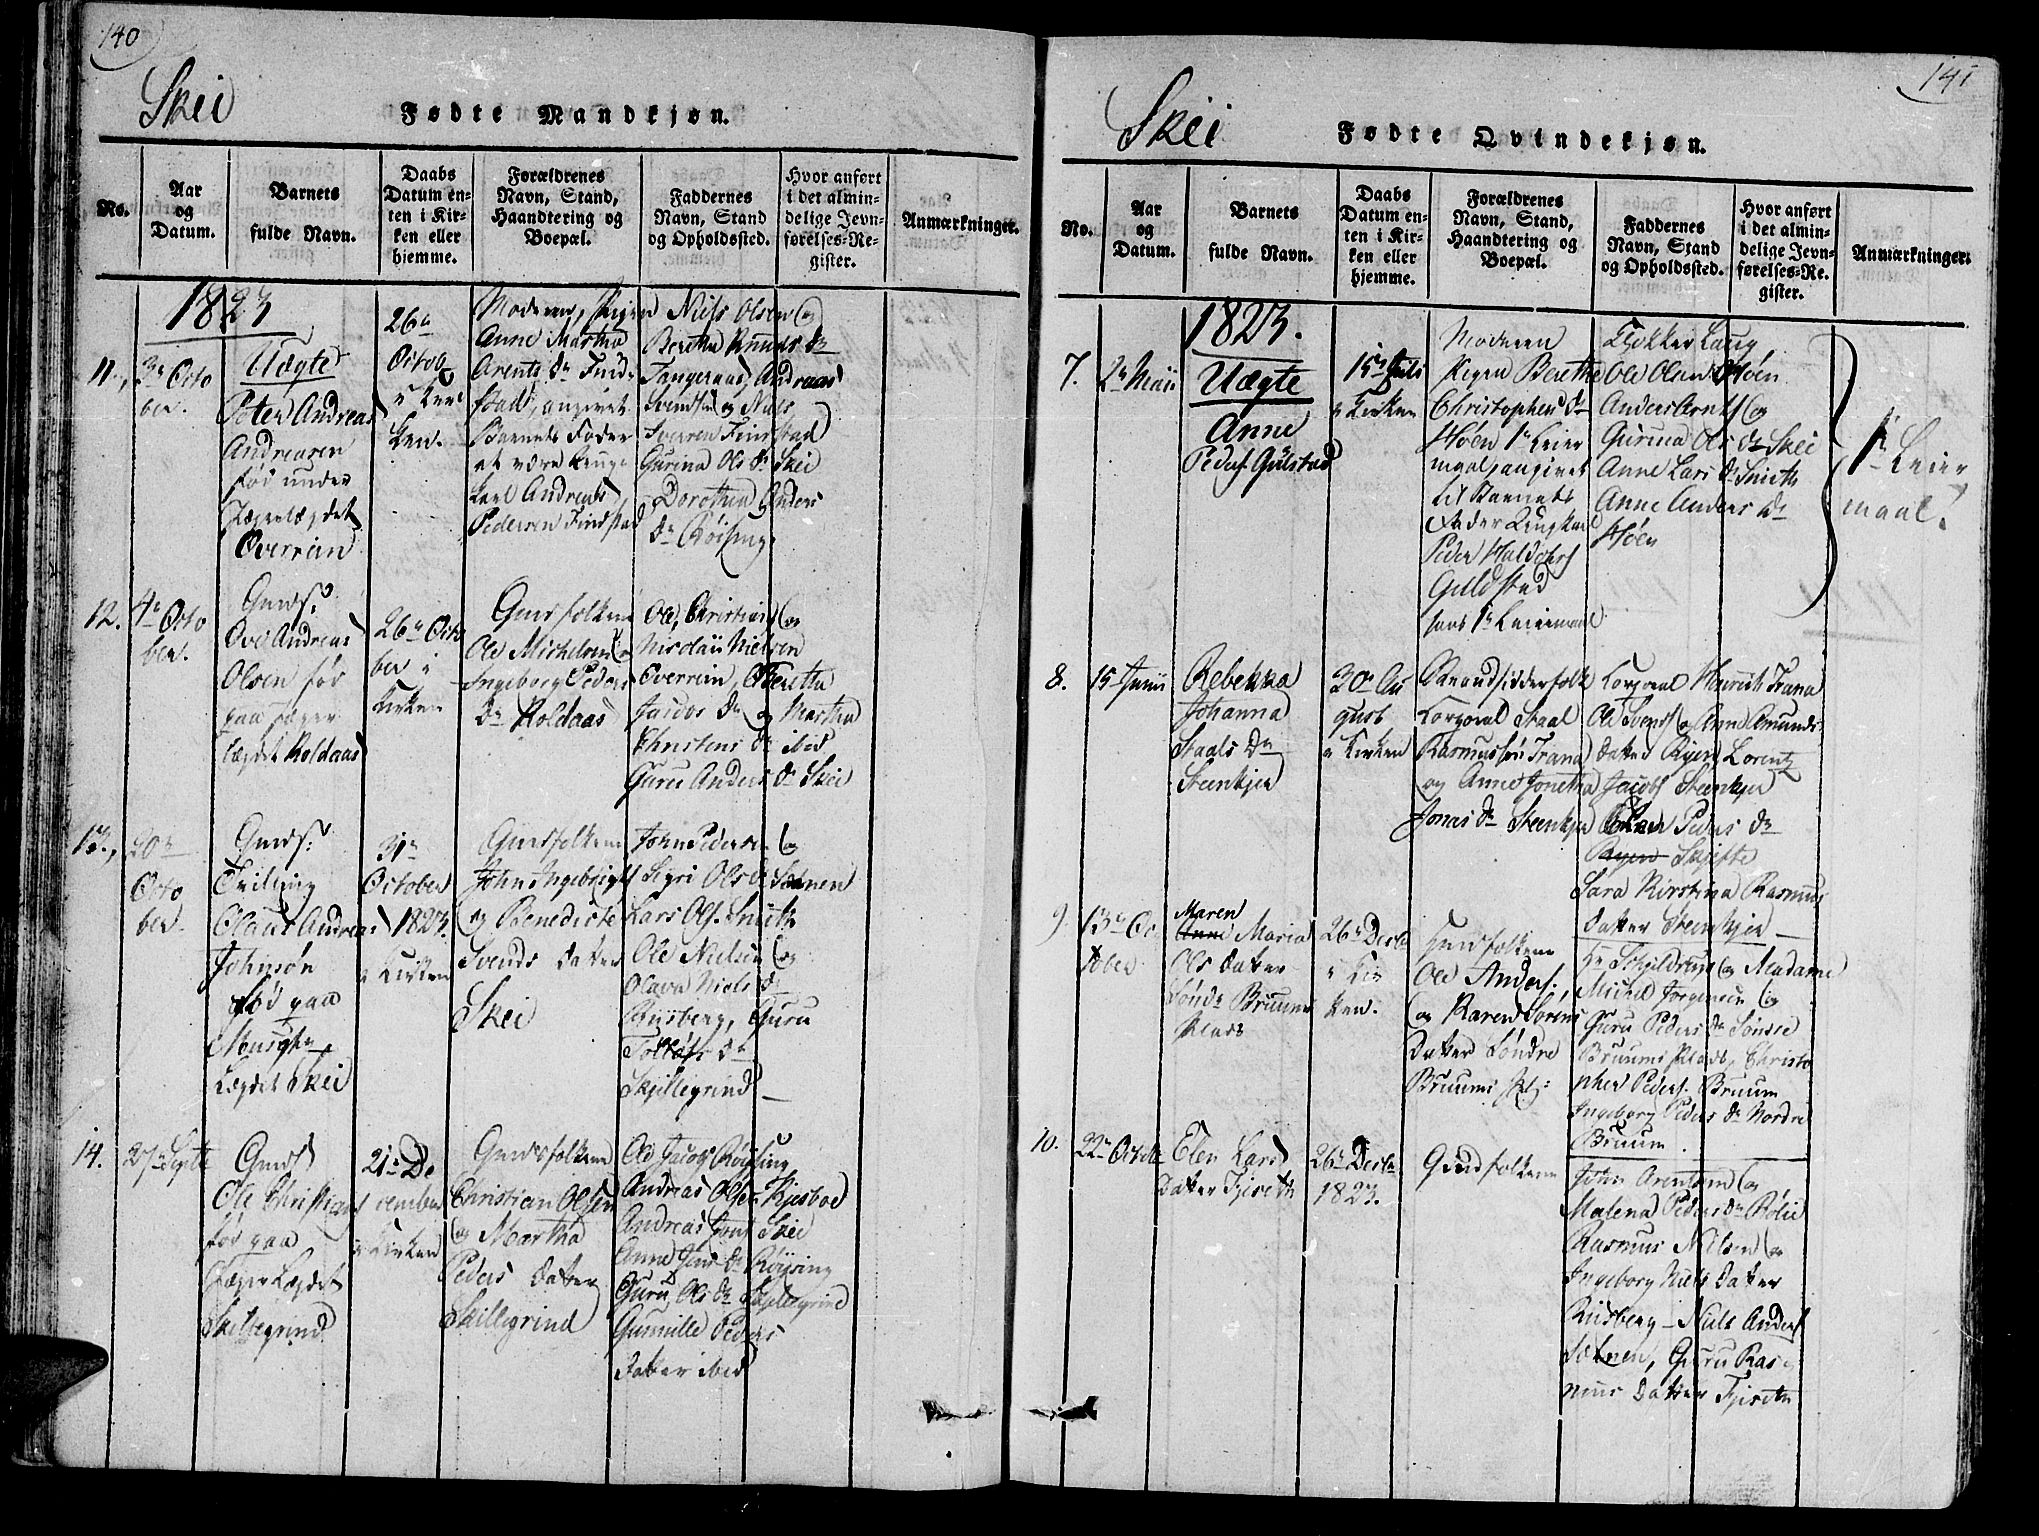 140
Skei
Fødte Mandkjøn.
No.
Aar
og
Datum.
Barnets
fulde Navn.
Daabs
Datum en-
ten i Kir-
ken eller
hjemme.
Forældrenes
Navn, Stand,
Haandtering og
Boepæl.
Faddernes
Navn, Stand
og Opholdssted.
Hvor anført
i det almin-
delige Jevn-
førelses-Re-
gister.
Anmærkninger.
1823
11.
3die Octo
ber.
Uægte
Peter Andreas
Andreasen
fød under
Overrein
26de
Octob
i Kir
ken.
Moderen, Pigen
Anne Martha
Arents Dr Find
stad, angivet
Barnets Fader
at være Unge
karl Andreas
Pedersen Findstad
Niels Olsen og
Beretha Knuds Dr
Tangeraas, Andreas
Svendsen og Niels
Sverren Findstad
Gurina Ols Dr Skei
Dorothea Anders
Dr Røising
12.
4de Octo
ber.
Gmds:
Ove Andreas
Olsen fød
paa Jæger
lægdet Roldaas
26de Octo
ber i
Kirken
Gmdsfolkene
Ole Michelsen og
Ingeborg Peders
Dr Roldaas
Ole Christian og
Nicolaii Nielsen
Overrein, Beretha
Jacobs Dr og Martha
Christens Dr ibid
Guru Anders Dr Skei
13.
20de
Octo
ber.
Gmds:
Tvilling
Olaus Andreas
Johnsøn
fød paa
Lægdet Skei
31te
October
1823.
i Kirken
Gmdsfolkene
John Ingebrigts
og Benedicte
Svends Datter
Skei
John Peders og
Sigri Ols Dr Sætnen
Lars Ols. Smith
Ole Nielsen og
Olava Niels Dr
Riisberg, Guru
Dr
Skjillegrind
14.
27de Septe
Gmds
Ole Christians
fød paa
Jæger Lægdet
Skillegrind
21de De
cember
i Kirken
Gmdsfolkene
Christian Olsen
og Martha
Peders Datter
Skillegrind
Ole Jacobs Røysing
Andreas Olsen Kjesboe
Andreas Jons Skei
Anne Jens Dr Røysing
Guru Ols Dr Skjellegrind
Gunnille Peders
Datter ibid
141
Skei
Fødte Qvindekjøn.
No.
Aar
og
Datum.
Barnets
fulde Navn.
Daabs
Datum en-
ten i Kir-
ken eller
hjemme.
Forældrenes
Navn, Stand,
Haandtering og
Boepæl.
Faddernes
Navn, Stand
og Opholdssted.
Hvor anført
i det almin-
delige Jevn-
førelses-Re-
gister.
Anmærkninger.
1823.
7.
2de Maii
Uægte
Anne
Pedersd. Gülstad
15de Juli
i Kirken
Moderen
Pigen Berethe
Christophers Dr
Høen 1te Leier
maal, angivet
til Barnets
Fader Ungkarl
Peder Haldors
Guldstad
hans 1te Leiermaal
Klokker Laug
Ole Olsen Høen
Anders Arnts og
Gurina Ols Dr Skei
Anne Lars Dr Smith
Anne Anders Dr
Høen
1te Leier
maal.
8.
15de Junii
Rebekka
Johanna
Staals Dr
Steenkjer
30te Au
gust
i Kirken
Strandsidderfolk
Corporal Staal
Rasmussen Trana
og Anne Jonetha
Jonas Dr Steenkjer
Corporal Henrich Trana
Ole Svends og Anne Amunds
datter Ryen, Lorentz
Jacobs Steenkjer
Peders Dr
Ryen Skjefte
Sara Kirstina Rasmus
datter Steenkjer
9.
13de Oc
tober
Maren
Anne Maria
Ols datter
Søndr Bruums
Plads
26de Decbr
i Kir
ken.
Gmdfolkene
Ole Anders.
og Karen Sørens
Datter Søndre
Bruums Pl:
Hr Schjeldrup og Madame
Michel Jørgensen og
Guru Peders Dr Søndre
Bruums Plads, Christo
pher Peders. Bruum
Ingeborg Peders Dr Nordre
Bruum.
10.
22de Octobr
Elen Lars
Datter Fjiseth
26de Decbr
1823.
Gmdfolkene
John Arentsen og
Malena Peders Dr Bølie
Rasmus Nielsen og
Ingeborg Niels Datter
Riisberg – Niels Anders
Sætnen, Guru Ras
mus Datter Fjiseth